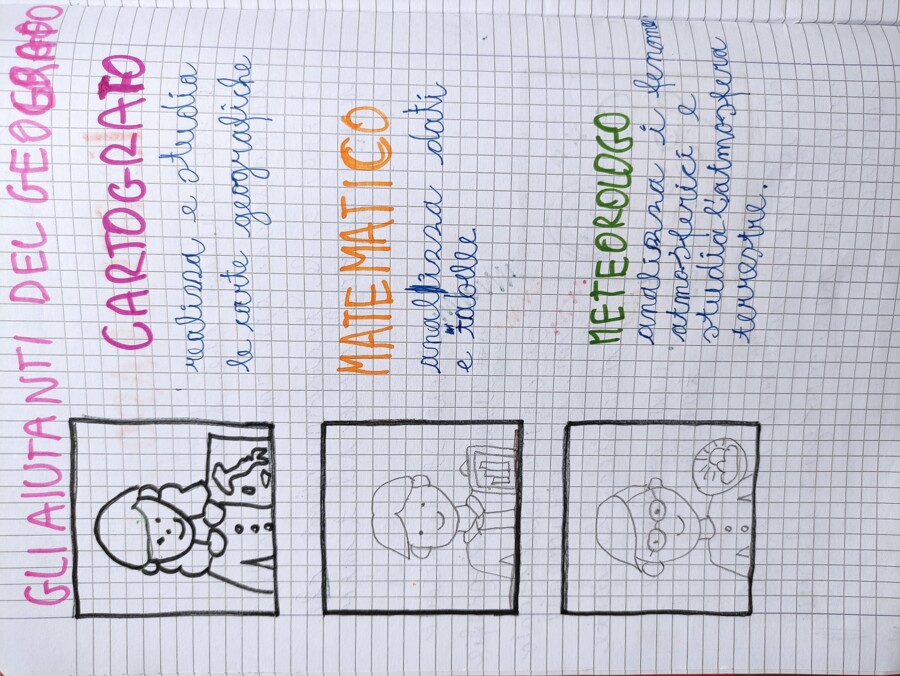 GLI AIUTANTI DEL GEOGRAFO
CARTOGRAFO
realizza e studia
le carte geografiche
MATEMATICO
analizza dati
e tabelle
METEOROLOGO
analizza i fenome
atmosferici e
studia l'atmosfera
terrestre.